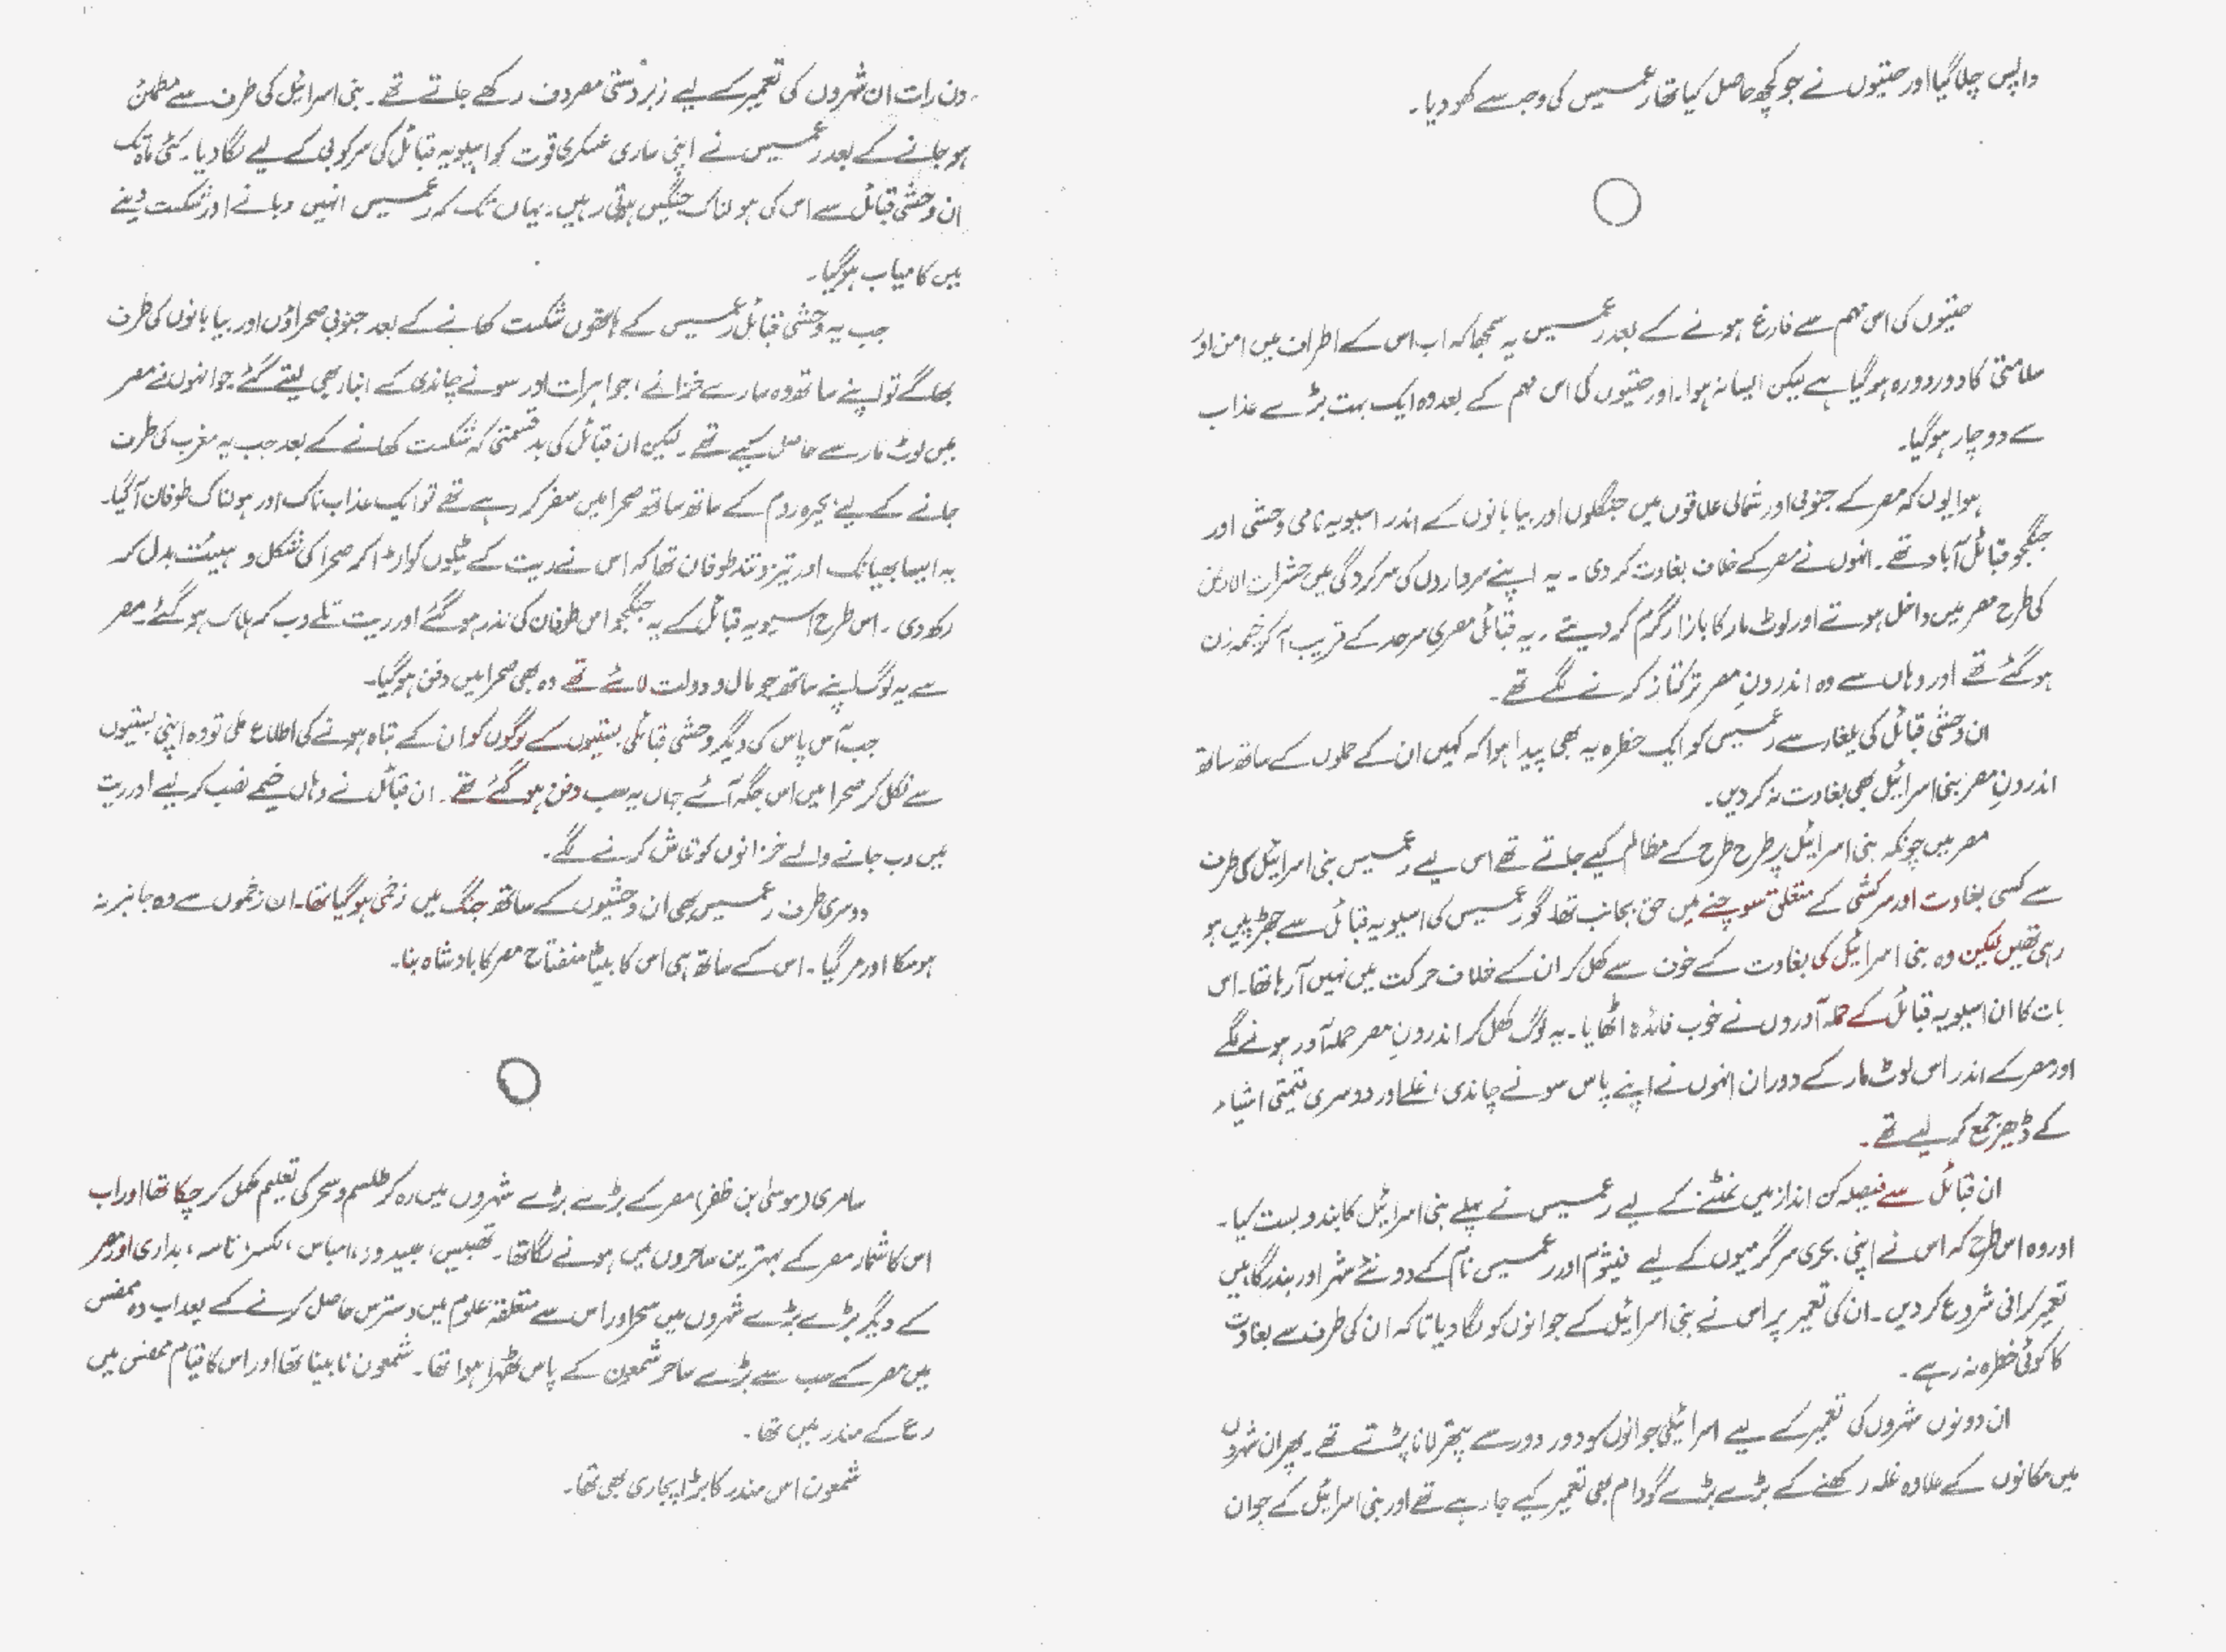 واپس چلا گیا اور حتیوں نے جو کچھ حاصل کیا تھا رعمسیس کی وجہ سے کھو دیا۔
حتیوں کی اس مہم سے فارغ ہونے کے بعد رعمسیس یہ سمجھا کہ اب اس کے اطراف میں امن اور
سلامتی کا دور دورہ ہو گیا ہے لیکن ایسا نہ ہوا۔ اور حتیوں کی اس مہم کے بعد وہ ایک بہت بڑے عذاب
سے دوچار ہو گیا۔
ہوا یوں کہ مصر کے جنوبی اور شمالی علاقوں میں جنگلوں اور بیابانوں کے اندر اسیلویہ نامی وحشی اور
جنگجو قبائل آباد تھے۔ انہوں نے مصر کے خلاف بغاوت کر دی۔ یہ اپنے سرداروں کی سرکردگی میں حشرات الارض
کی طرح مصر میں داخل ہوتے اور لوٹ مار کا بازار گرم کر دیتے۔ یہ قبائلی مصری سرحد کے قریب آ کر خیمہ زن
ہو گئے تھے اور وہاں سے وہ اندرونِ مصر ترکتاز کرنے لگے تھے۔
ان وحشی قبائل کی یلغار سے رعمسیس کو ایک خطرہ یہ بھی پیدا ہوا کہ کہیں ان کے حملوں کے ساتھ ساتھ
اندرونِ مصر بنی اسرائیل بھی بغاوت نہ کر دیں۔
مصر میں چونکہ بنی اسرائیل پر طرح طرح کے مظالم کیے جاتے تھے اس لیے رعمسیس بنی اسرائیل کی طرف
سے کسی بغاوت اور سرکشی کے متعلق سوچنے میں حق بجانب تھا۔ گو رعمسیس کی اسیلویہ قبائل سے جھڑپیں ہو
رہی تھیں لیکن وہ بنی اسرائیل کی بغاوت کے خوف سے کھل کر ان کے خلاف حرکت میں نہیں آ رہا تھا۔ اس
بات کا ان اسیلویہ قبائل کے حملہ آوروں نے خوب فائدہ اٹھایا۔ یہ لوگ کھل کر اندرونِ مصر حملہ آور ہونے لگے
اور مصر کے اندر اس لوٹ مار کے دوران انہوں نے اپنے پاس سونے چاندی، غلے اور دوسری قیمتی اشیاء
کے ڈھیر جمع کر لیے تھے۔
ان قبائل سے فیصلہ کن انداز میں نمٹنے کے لیے رعمسیس نے پہلے بنی اسرائیل کا بندوبست کیا۔
اور وہ اس طرح کہ اس نے اپنی بحری سرگرمیوں کے لیے فیثوم اور رعمسیس نام کے دو نئے شہر اور بندرگاہیں
تعمیر کرانی شروع کر دیں۔ ان کی تعمیر پر اس نے بنی اسرائیل کے جوانوں کو لگا دیا تاکہ ان کی طرف سے بغاوت
کا کوئی خطرہ نہ رہے۔
ان دونوں شہروں کی تعمیر کے لیے اسرائیلی جوانوں کو دور دور سے پتھر لانا پڑتے تھے۔ پھر ان شہروں
میں مکانوں کے علاوہ غلہ رکھنے کے بڑے بڑے گودام بھی تعمیر کیے جا رہے تھے اور بنی اسرائیل کے جوان
دن رات ان شہروں کی تعمیر کے لیے زبردستی مصروف رکھے جاتے تھے۔ بنی اسرائیل کی طرف سے مطمئن
ہو جانے کے بعد رعمسیس نے اپنی ساری عسکری قوت کو اسیلویہ قبائل کی سرکوبی کے لیے لگا دیا۔ کئی ماہ تک
ان وحشی قبائل سے اس کی ہولناک جنگیں ہوتی رہیں۔ یہاں تک کہ رعمسیس انہیں دبانے اور شکست دینے
میں کامیاب ہو گیا۔
جب یہ وحشی قبائل رعمسیس کے ہاتھوں شکست کھانے کے بعد جنوبی صحراؤں اور بیابانوں کی طرف
بھاگے تو اپنے ساتھ وہ سارے خزانے، جواہرات اور سونے چاندی کے انبار بھی لیتے گئے جو انہوں نے مصر
میں لوٹ مار سے حاصل کیے تھے۔ لیکن ان قبائل کی بدقسمتی کہ شکست کھانے کے بعد جب یہ مغرب کی طرف
جانے کے لیے بحیرہ روم کے ساتھ ساتھ صحرا میں سفر کر رہے تھے تو ایک عذاب ناک اور ہولناک طوفان آ گیا۔
یہ ایسا بھیانک اور تیز و تند طوفان تھا کہ اس نے ریت کے ٹیلوں کو اڑا کر صحرا کی شکل و ہیئت بدل کر
رکھ دی۔ اس طرح اسیلویہ قبائل کے یہ جنگجو اس طوفان کی نذر ہو گئے اور ریت تلے دب کر ہلاک ہو گئے۔ مصر
سے یہ لوگ اپنے ساتھ جو مال و دولت لائے تھے وہ بھی صحرا میں دفن ہو گیا۔
جب آس پاس کی دیگر وحشی قبائلی بستیوں کے لوگوں کو ان کے تباہ ہونے کی اطلاع ملی تو وہ اپنی بستیوں
سے نکل کر صحرا میں اس جگہ آئے جہاں یہ سب دفن ہو گئے تھے۔ ان قبائل نے وہاں خیمے نصب کر لیے اور ریت
میں دب جانے والے خزانوں کو تلاش کرنے لگے۔
دوسری طرف رعمسیس بھی ان وحشیوں کے ساتھ جنگ میں زخمی ہو گیا تھا۔ ان زخموں سے وہ جانبر نہ
ہو سکا اور مر گیا۔ اس کے ساتھ ہی اس کا بیٹا منفتاح مصر کا بادشاہ بنا۔
سامری (موسیٰ بن ظفر) مصر کے بڑے بڑے شہروں میں رہ کر طلسم و سحر کی تعلیم مکمل کر چکا تھا اور اب
اس کا شمار مصر کے بہترین ساحروں میں ہونے لگا تھا۔ تھیبس، ابیدوز، امباس، لکسر، تاسہ، بداری اور مصر
کے دیگر بڑے بڑے شہروں میں سحر اور اس سے متعلقہ علوم میں دسترس حاصل کرنے کے بعد اب وہ ممفس
میں مصر کے سب سے بڑے ساحر شمعون کے پاس ٹھہرا ہوا تھا۔ شمعون نابینا تھا اور اس کا قیام ممفس میں
رع کے مندر میں تھا۔
شمعون اس مندر کا بڑا پجاری بھی تھا۔